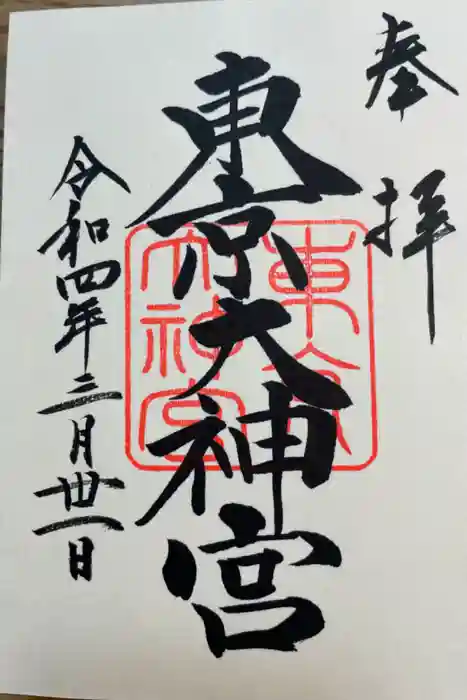 奉拝
東京大神宮
東京
大神宮
令和四年三月卅一日